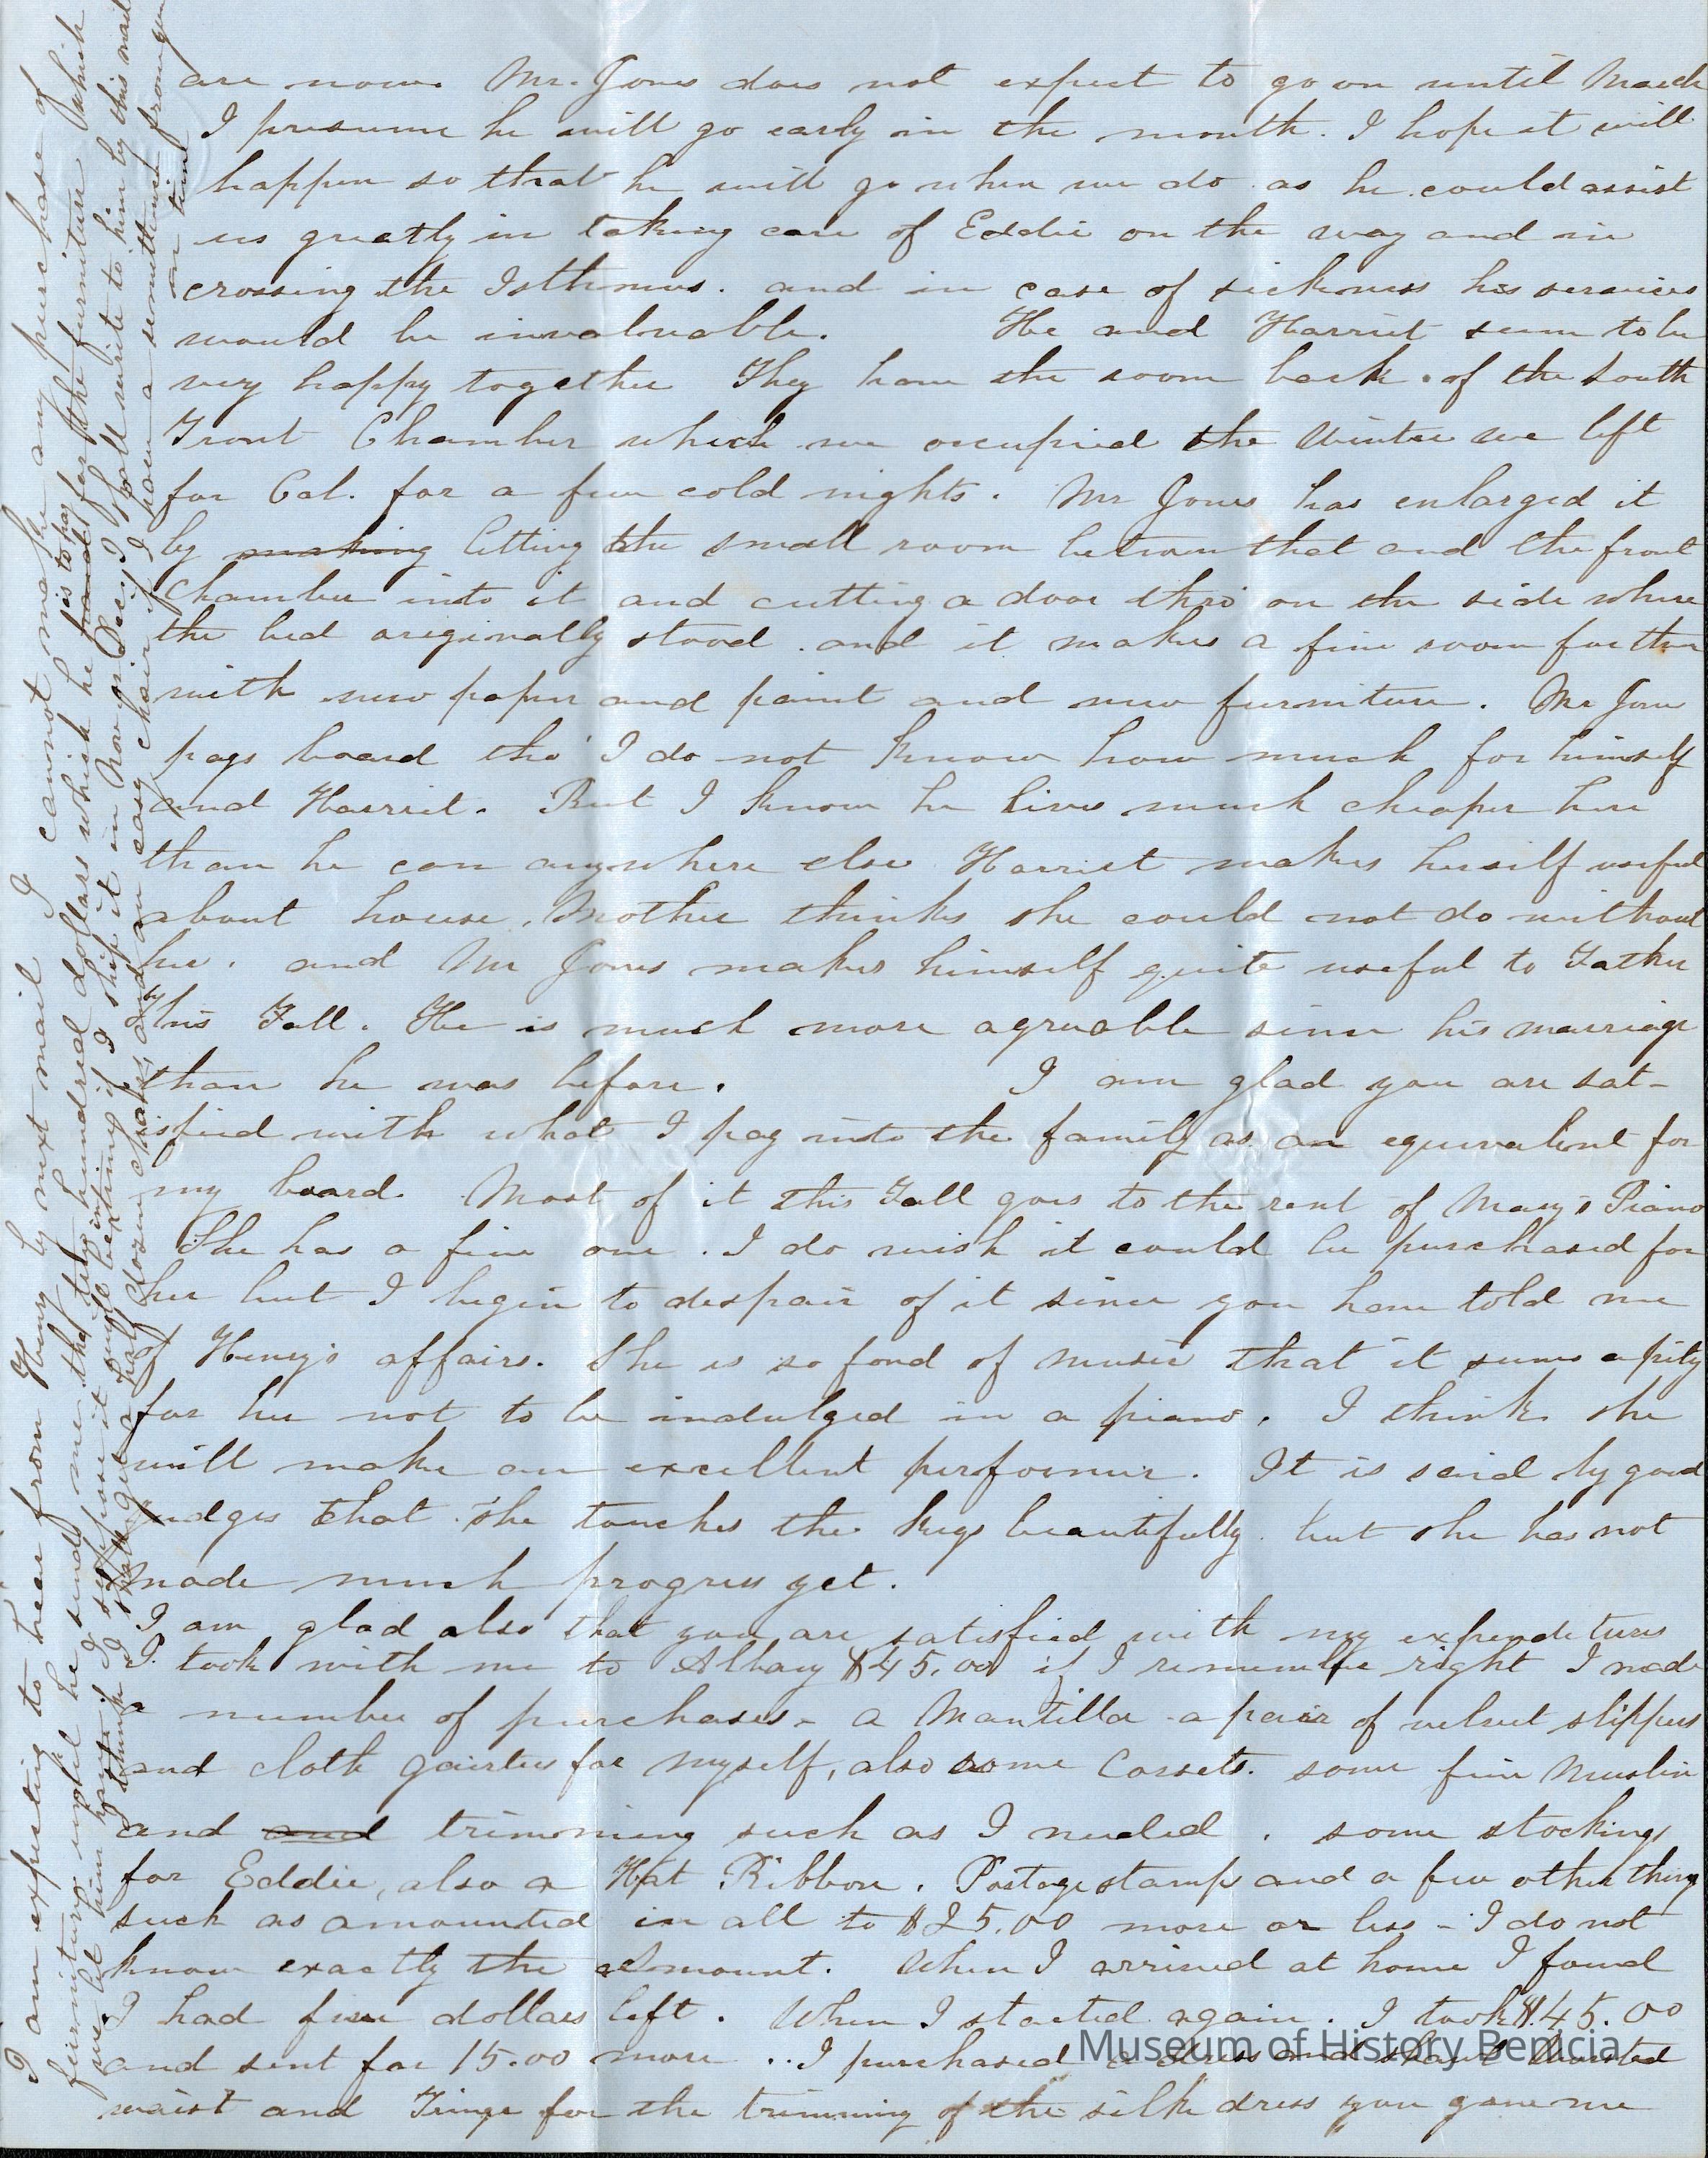 are now. Mr. Jones does not expect to go on until March
I presume he will go early in the month. I hope it will
happen so that he will go when we do as he could assist
us greatly in taking care of Eddie on the way and in
crossing the Isthmus. and in case of sickness his services
would be invaluable. He and Harriet seem to be
very happy together They have the room back of the South
Front Chamber which we occupied the Winter we left
for Cal. for a few cold nights. Mr Jones has enlarged it
by making letting the small room between that and the front
Chamber into it and cutting a door thro' on the side where
the bed originally stood. and it makes a fine room for them
with new paper and paint and new furniture. Mr Jones
pays board tho' I do not know how much for himself
and Harriet. But I know he lives much cheaper here
than he can anywhere else Harriet makes herself useful
about house, Mother thinks she could not do without
her. and Mr Jones makes himself quite useful to Father
this Fall. He is much more agreable since his marriage
than he was before. I am glad you are sat-
isfied with what I pay into the family as an equivalent for
my board. Most of it this Fall goes to the rent of Mary's Piano
She has a fine one. I do wish it could be purchased for
her but I begin to despair of it since you have told me
of Henry's affairs. She is so fond of music that it seems a pity
for her not to be indulged in a piano. I think she
will make an excellent performer. It is said by good
judges that she touches the keys beautifully. but she has not
made much progress yet.
I am glad also that you are satisfied with my expenditures
I took with me to Albany $45.00 if I remember right I made
a number of purchases - a Mantilla - a pair of velvet slippers
and cloth gaiters for myself, also some Corsets. some fine Muslin
and and trimming such as I needed. some stockings
for Eddie, also a Hat Ribbon. Postage stamps and a few other things
such as amounted in all to $25.00 more or less - I do not
know exactly the amount. When I arrived at home I found
I had five dollars left. When I started again. I took $45.00
and sent for 15.00 more.. I purchased a dress and shawl Worsted
waist and Fringe for the trimming of the silk dress you gave me
I am expecting to hear from Henry by next mail I cannot make any purchase of
furniture until he sends me the two hundred dollars which he has to pay for the furniture which
we let him have. I suppose it might be interesting if I ship it in Nov or Dec. I shall write to him by this mail
I think I shall get a half dozen chairs, and an easy chair if I have a remittance from you
in time
Museum of History Benicia